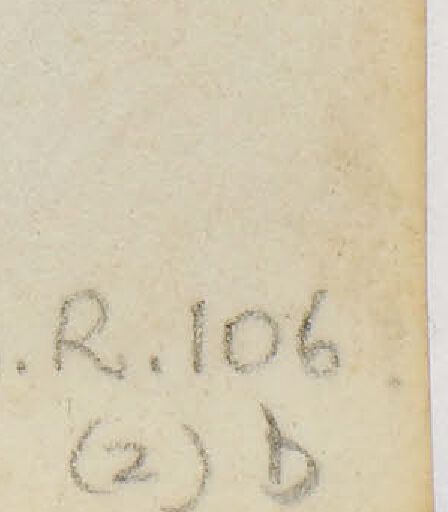 .R.106
(2) b